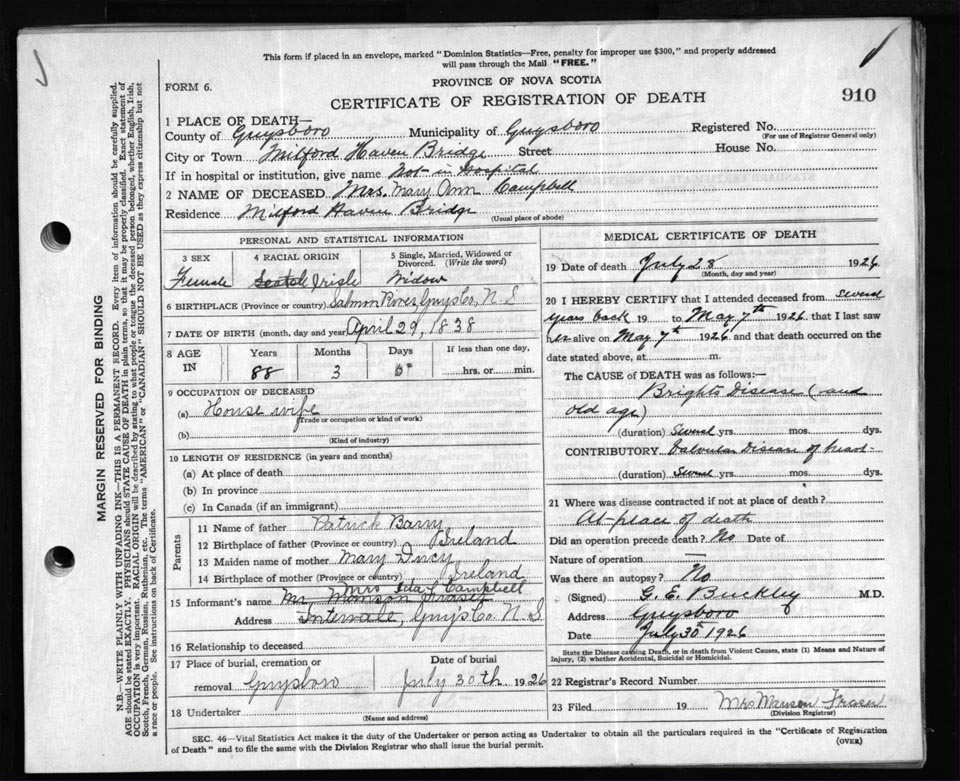 This form if placed in an envelope, marked "Dominion Statistics—Free, penalty for improper use $300," and properly addressed
will pass through the Mail "FREE."
PROVINCE OF NOVA SCOTIA
FORM 6.
CERTIFICATE OF REGISTRATION OF DEATH
910
1 PLACE OF DEATH—
County of Guysboro Municipality of Guysboro Registered No.
(For use of Registrar General only)
City or Town Milford Haven Bridge Street House No.
If in hospital or institution, give name Not in Hospital
2 NAME OF DECEASED Mrs. Mary Ann Campbell
Residence Milford Haven Bridge
(Usual place of abode)
PERSONAL AND STATISTICAL INFORMATION
3 SEX 4 RACIAL ORIGIN 5 Single, Married, Widowed or Divorced. (Write the word)
Female Scotch Irish Widow
6 BIRTHPLACE (Province or country) Salmon River, Guys Co, N.S
7 DATE OF BIRTH (month, day and year) April 29, 1838
8 AGE IN Years Months Days If less than one day,
88 3 hrs. or min.
9 OCCUPATION OF DECEASED
(a) House wife
(Trade or occupation or kind of work)
(b)
(Kind of industry)
10 LENGTH OF RESIDENCE (in years and months)
(a) At place of death
(b) In province
(c) In Canada (if an immigrant)
Parents
11 Name of father Patrick Barry
12 Birthplace of father (Province or country) Ireland
13 Maiden name of mother Mary
14 Birthplace of mother (Province or country) Ireland
Mrs Ida L Campbell
15 Informant's name Mr Manson Fraser
Address Intervale, Guys Co. N.S
16 Relationship to deceased
17 Place of burial, cremation or removal Guysboro Date of burial July 30th 1926
18 Undertaker
(Name and address)
MEDICAL CERTIFICATE OF DEATH
19 Date of death July 28 1926
(Month, day and year)
20 I HEREBY CERTIFY that I attended deceased from several
years back 19 to May 7th 1926 that I last saw
her alive on May 7th 1926 and that death occurred on the
date stated above, at m.
The CAUSE of DEATH was as follows:—
Brights Disease (and
old age)
(duration) Several yrs. mos. dys.
CONTRIBUTORY Valvular Disease of heart
(duration) Several yrs. mos. dys.
21 Where was disease contracted if not at place of death?
At place of death
Did an operation precede death? No Date of
Nature of operation —
Was there an autopsy? No
(Signed) G. E. Buckley M.D.
Address Guysboro
Date July 30 1926
State the Disease causing Death, or in death from Violent Causes, state (1) Means and Nature of
Injury, (2) whether Accidental, Suicidal or Homicidal.
22 Registrar's Record Number
23 Filed 19 Mrs Manson Fraser
(Division Registrar)
SEC. 46—Vital Statistics Act makes it the duty of the Undertaker or person acting as Undertaker to obtain all the particulars required in the "Certificate of Registration
of Death" and to file the same with the Division Registrar who shall issue the burial permit.
(OVER)
MARGIN RESERVED FOR BINDING
N.B.—WRITE PLAINLY WITH UNFADING INK—THIS IS A PERMANENT RECORD. Every item of information should be carefully supplied.
AGE should be stated EXACTLY. PHYSICIANS should STATE CAUSE OF DEATH in plain terms, so that it may be properly classified. Exact statement of
OCCUPATION is very important. RACIAL ORIGIN will be described by stating to what people or tongue the deceased person belonged, whether English, Irish,
Scotch, French, German, Russian, Ruthenian, etc. The terms "AMERICAN" or "CANADIAN" SHOULD NOT BE USED as they express citizenship but not
a race or people. See instructions on back of Certificate.